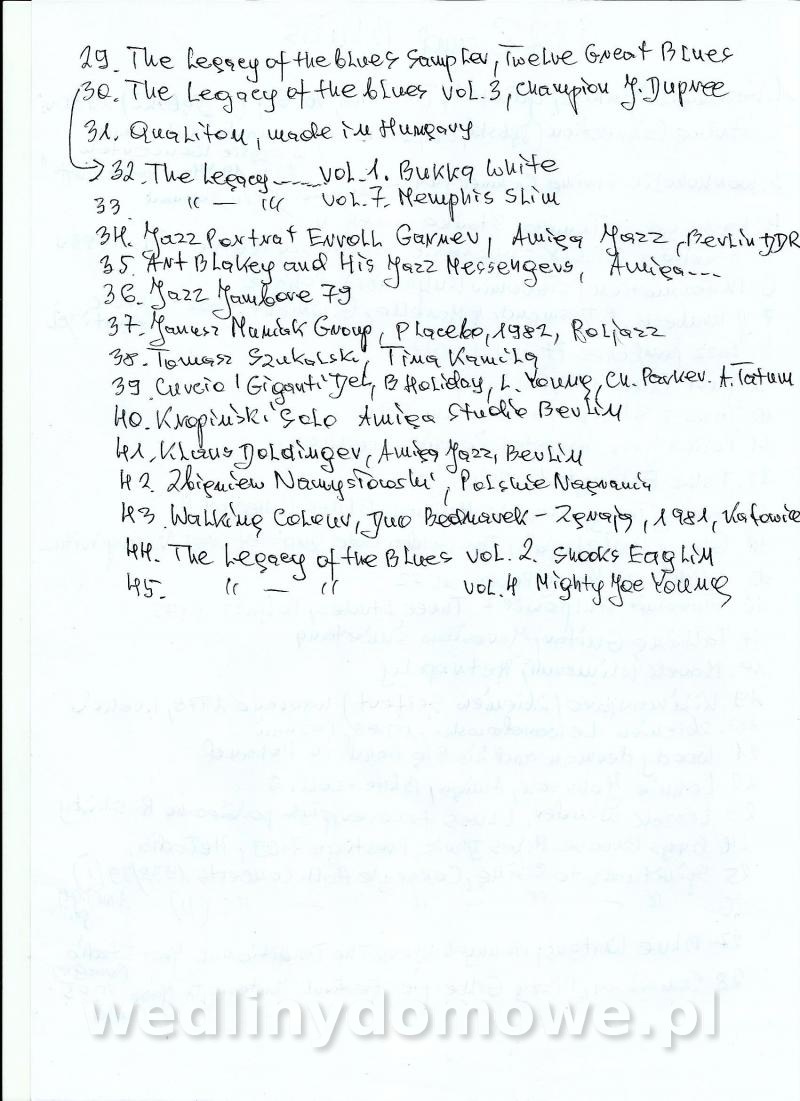 29. The Legacy of the blues Sampler, Twelve Great Blues
30. The Legacy of the blues vol. 3, champion J. Dupree
31. Qualiton, made in Hungary
32. The Legacy ...... vol. 1. Bukka White
33. " — " vol. 7. Memphis Slim
34. Jazz Portrat Erroll Garner, Amiga Jazz, Berlin DDR
35. Art Blakey and His Jazz Messengers, Amiga...
36. Jazz Jambore 79
37. Janusz Muniak Group, Placebo, 1982, Poljazz
38. Tomasz Szukalski, Tina Kamila
39. Curcio I Giganti Del, B Holiday, L. Young, Ch. Parker. A. Tatum
40. Kropiński Solo Amiga Studio Berlin
41. Klaus Doldinger, Amiga Jazz, Berlin
42. Zbigniew Namysłowski, Polskie Nagrania
43. Walking Colour, Duo Bednarek – Zgraja, 1981, Katowice
44. The Legacy of the Blues vol. 2. Snooks Eaglin
45. " — " vol. 4 Mighty Joe Young
wedlinydomowe.pl